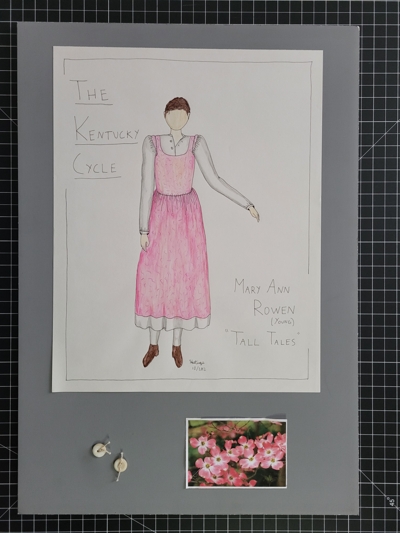 THE
KENTUCKY
CYCLE
MARY ANN
ROWEN
(YOUNG)
"TALL TALES"